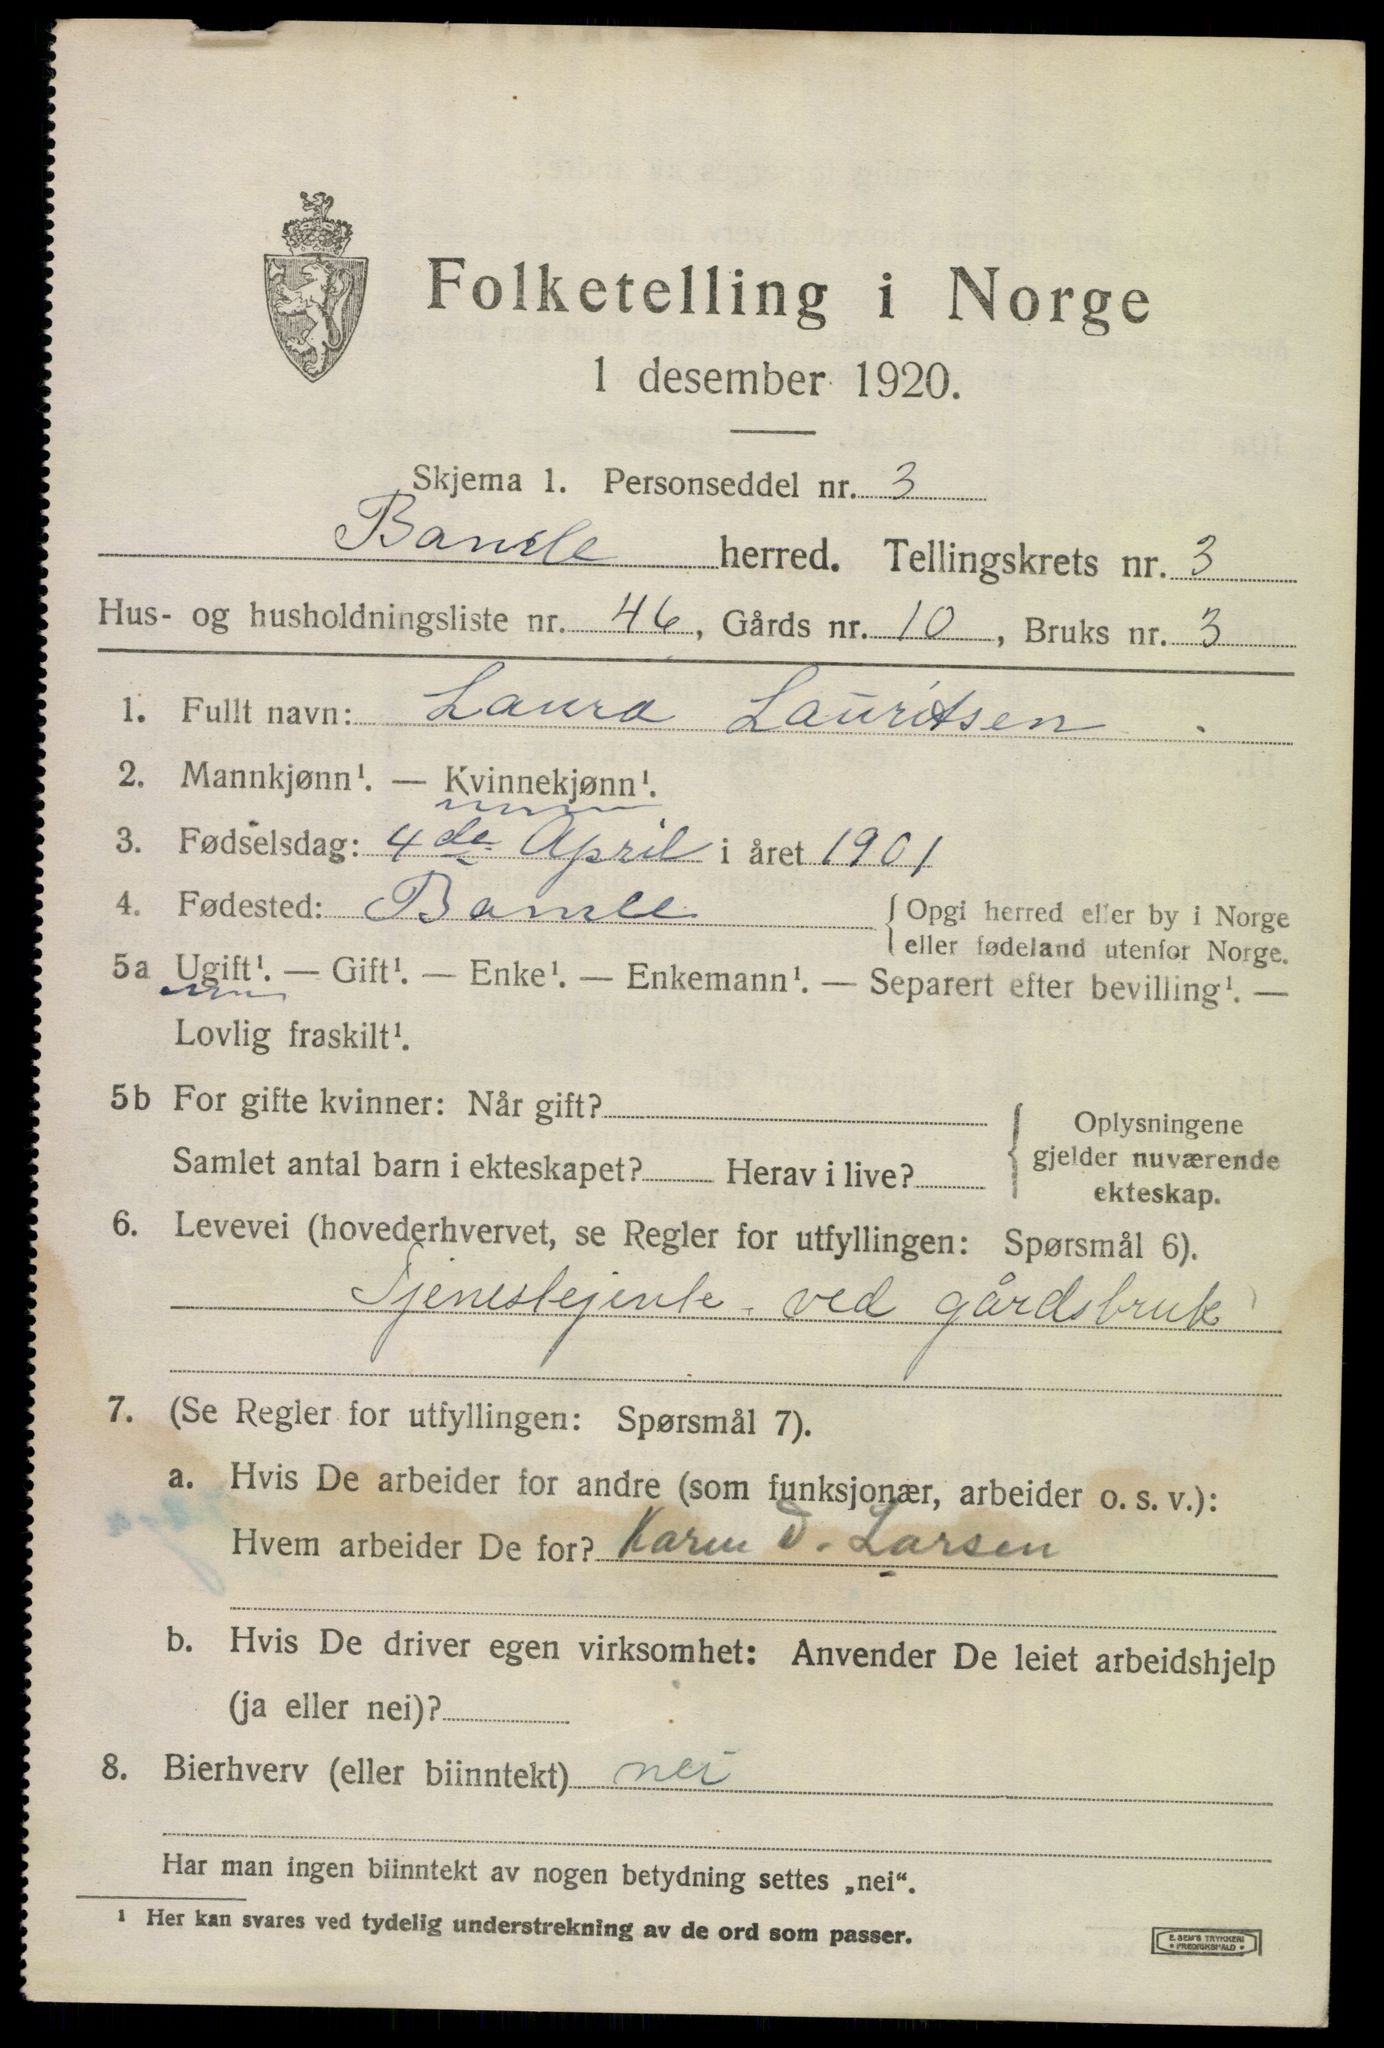 Folketelling i Norge
1 desember 1920.
Skjema 1. Personseddel nr. 3
Bamle herred. Tellingskrets nr. 3
Hus- og husholdningsliste nr. 46, Gårds nr. 10, Bruks nr. 3
1. Fullt navn: Laura Lauritsen
2. Mannkjønn¹. — Kvinnekjønn¹.
3. Fødselsdag: 4de April i året 1901
4. Fødested: Bamle {Opgi herred eller by i Norge
eller fødeland utenfor Norge.
5a Ugift¹. — Gift¹. — Enke¹. — Enkemann¹. — Separert efter bevilling¹. —
Lovlig fraskilt¹.
5b For gifte kvinner: Når gift?
Samlet antal barn i ekteskapet? Herav i live?
{Oplysningene
gjelder nuværende
ekteskap.
6. Levevei (hovederhvervet, se Regler for utfyllingen: Spørsmål 6).
Tjenestejente ved gårdsbruk
7. (Se Regler for utfyllingen: Spørsmål 7).
a. Hvis De arbeider for andre (som funksjonær, arbeider o. s. v.):
Hvem arbeider De for? Karen D. Larsen
b. Hvis De driver egen virksomhet: Anvender De leiet arbeidshjelp
(ja eller nei)?
8. Bierhverv (eller biinntekt) nei
Har man ingen biinntekt av nogen betydning settes „nei“.
¹ Her kan svares ved tydelig understrekning av de ord som passer.
E. SEM'S TRYKKERI
FREDRIKSHALD